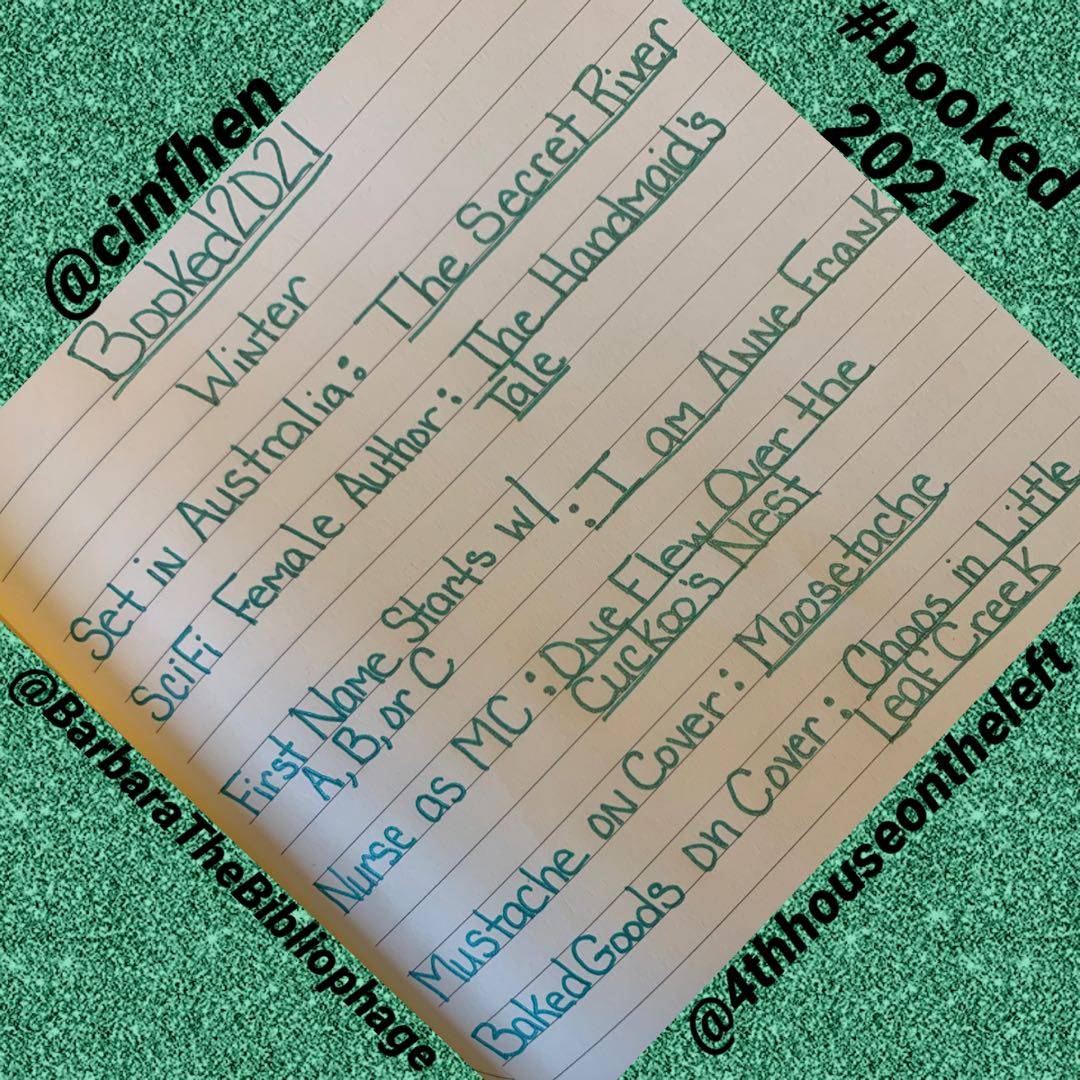 @cinfhen
#booked
2021
Booked2021
Winter
Set in Australia: The Secret River
SciFi Female Author: The Handmaid's
Tale
First Name Starts w/ : I am Anne Frank
A, B, or C
Nurse as MC : One Flew Over the
Cuckoo's Nest
Mustache on Cover: Moosetache
Baked Goods on Cover: Chaos in Little
Leaf Creek
@BarbaraTheBibliophage
@4thhouseontheleft